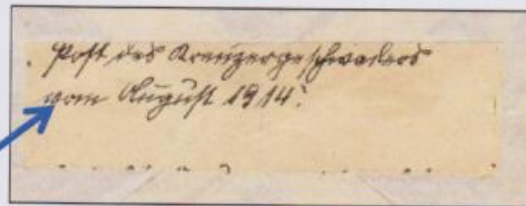 Post des Kreuzergeschwaders
vom August 1914.